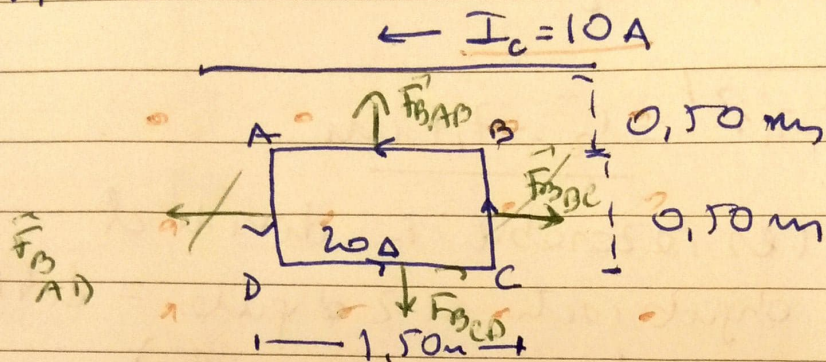 ← I_c = 10 A
F⃗_B,AB
0,50 m
A
B
F⃗_B BC
0,50 m
F⃗_B AD
20A
D
C
F⃗_B CD
1,50m